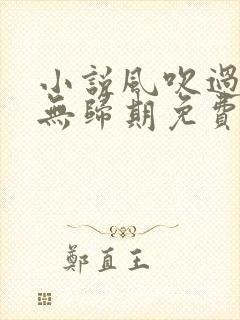 小說風吹過
無歸期免費
鄭直王